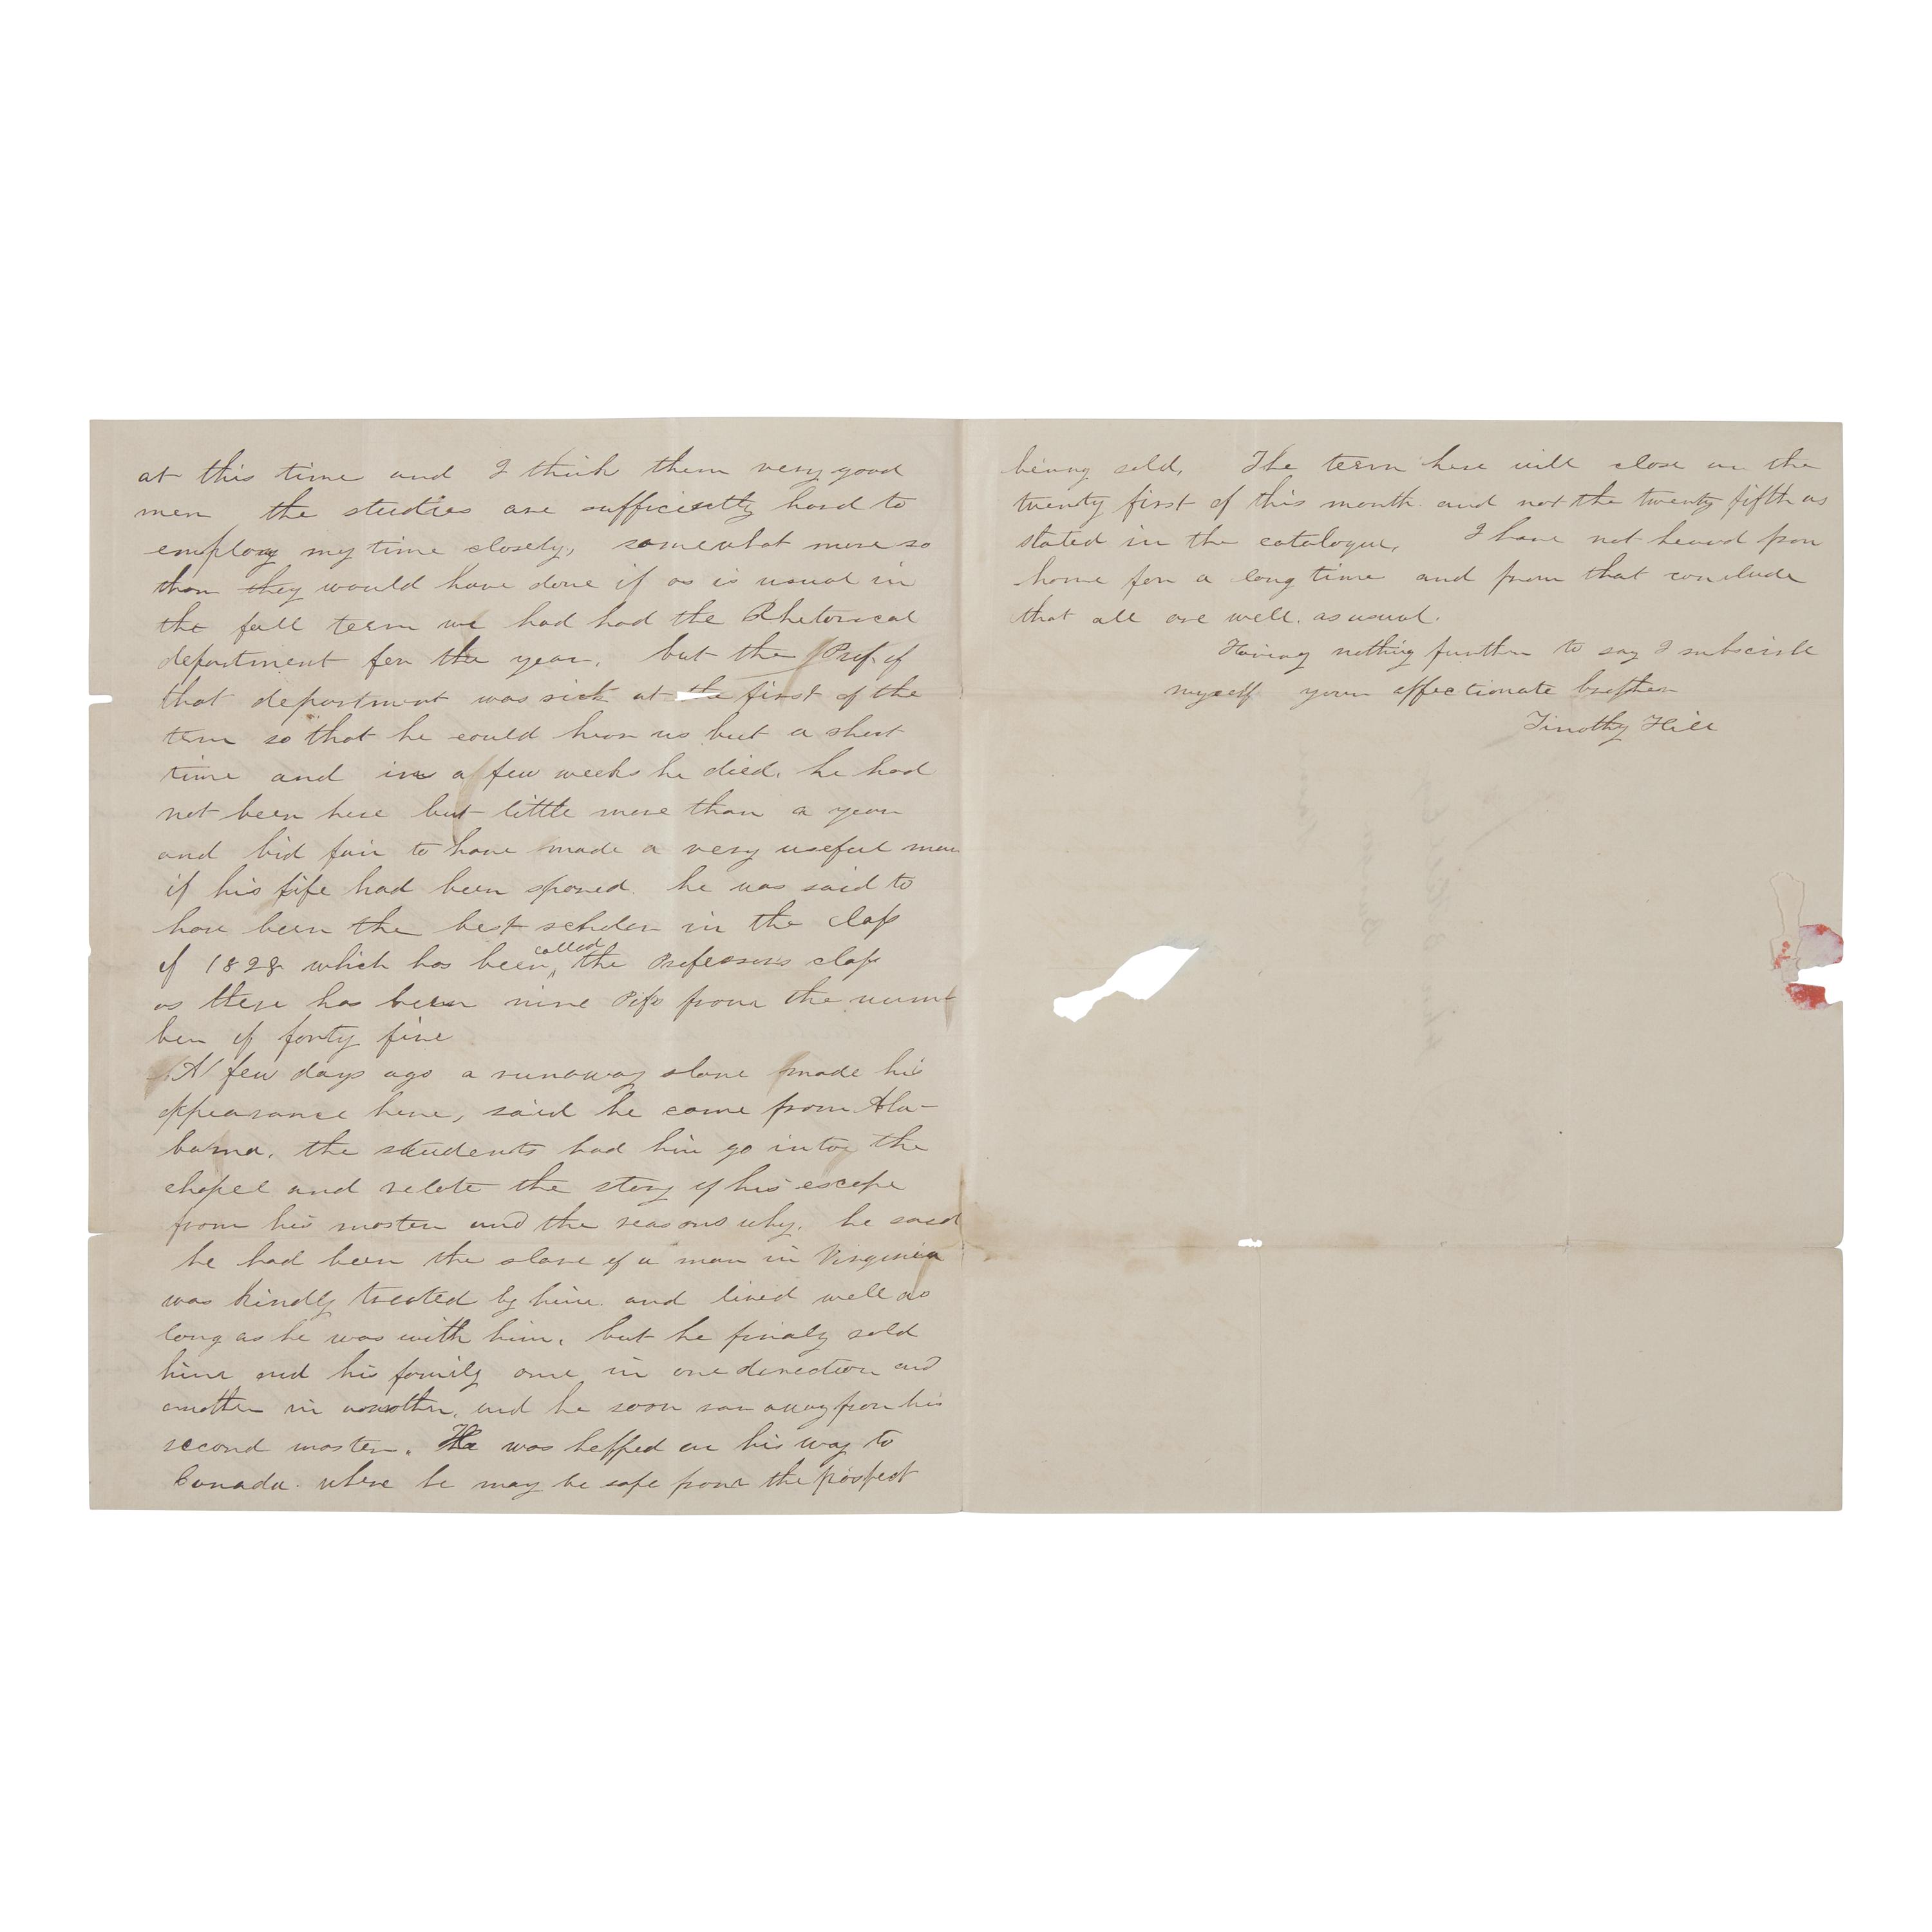 at this time and I think them very good
men the studies are sufficiently hard to
employ my time closely, somewhat more so
than they would have done if as is usual in
the fall term we had had the Rhetorical
department for the year. but the Prof. of
that department was sick at the first of the
term so that he could hear us but a short
time and in a few weeks he died. he had
not been here but little more than a year
and bid fair to have made a very useful man
if his life had been spared. he was said to
have been the best scholar in the class
of 1828 which has been called the Professors class
as there has been nine from the num-
ber of forty five
A few days ago a runaway slave made his
appearance here, said he came from Ala-
bama. the students had him go into the
chapel and relate the story of his escape
from his master and the reasons why. he said
he had been the slave of a man in Virginia
was kindly treated by him. and lived well as
long as he was with him, but he finaly sold
him and his family one in one direction and
another in another, and he soon ran away from his
second master. He was helped on his way to
Canada. where he may be safe from the prospect
being sold, The term here will close on the
twenty first of this month and not the twenty fifth as
stated in the catalogue, I have not heard from
home for a long time and from that conclude
that all are well. as usual.
Having nothing further to say I subscribe
myself your affectionate brother
Timothy Hill